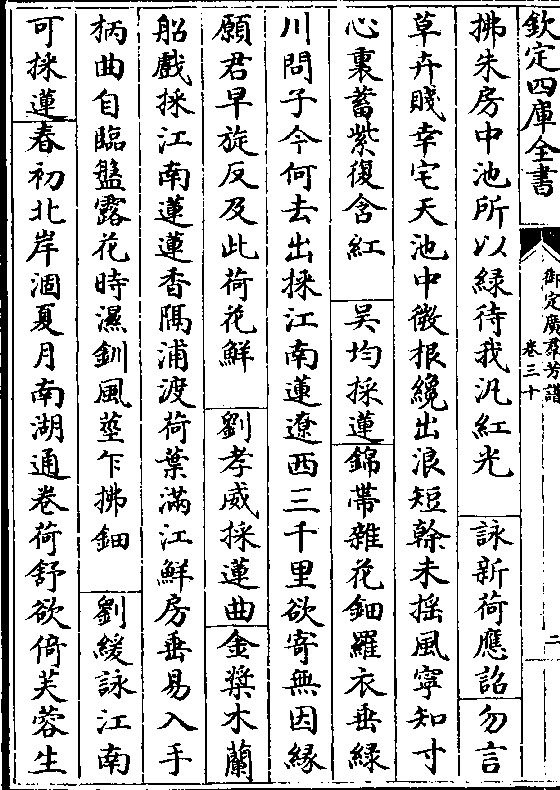 欽定四庫全書
御定廣羣芳譜
卷三十
二
拂朱房中池所以緑待我汎紅光 詠新荷應詔勿言
草卉賤幸宅天池中微根纔出浪短榦未揺風寧知寸
心裏蓄紫復含紅 吴均採蓮錦帶雜花鈿羅衣垂緑
川問子今何去出採江南蓮遼西三千里欲寄無因縁
願君早旋反及此荷花鮮 劉孝威採蓮曲金槳木蘭
船戲採江南蓮蓮香隔浦渡荷葉滿江鮮房垂易入手
柄曲自臨盤露花時濕釧風莖乍拂鈿 劉緩詠江南
可採蓮春初北岸涸夏月南湖通卷荷舒欲倚芙蓉生